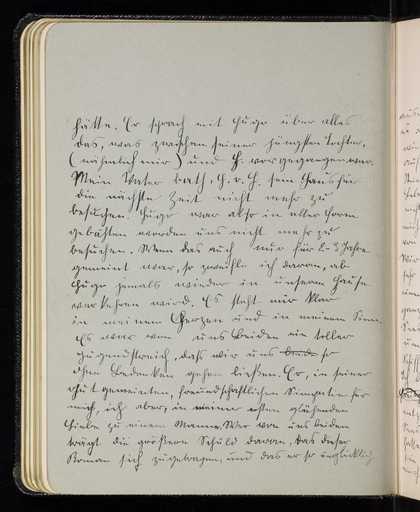 hätte. Er sprach mit Hugo über alles
das, was zwischen seiner jüngsten Tochter,
(nähmlich mir) und H. vorgegangen war.
Mein Vater bath, H. v. H. sein Haus für
die nächste Zeit nicht mehr zu
besuchen. Hugo war also in aller Form
gebäthen worden uns nicht mehr zu
besuchen. Wenn das auch nur für 2-3 Jahre
gemeint war, so zweifle ich daran, ob
Hugo jemals wieder in unserem Hause
verkehren wird. Es steht mir klar
in meinem Herzen und in meinem Sinn.
Es war von uns beiden ein toller
Jugendstreich, daß wir uns so
ohne Bedenken gehen ließen. Er, in seiner
gut gemeinten, freundschaftlichen Simpatie für
mich, ich aber, in meiner ersten glühenden
Liebe zu einem Manne. Wer von uns beiden
trägt die größere Schuld daran, das dieser
Roman sich zugetragen, und das er so unglücklich